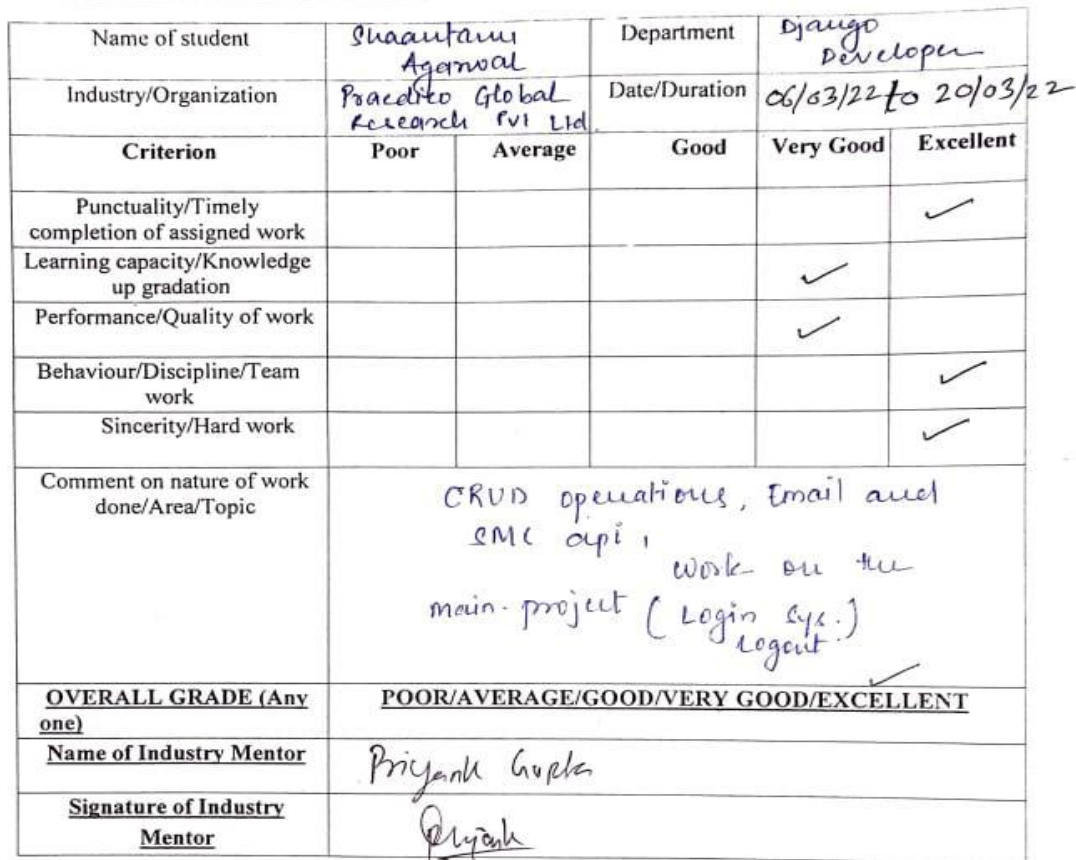 Name of student Shaantanu Department Django
Agarwal Developer
Industry/Organization Praedico Global Date/Duration 06/03/22 to 20/03/22
Research Pvt Ltd.
Criterion Poor Average Good Very Good Excellent
Punctuality/Timely
completion of assigned work
Learning capacity/Knowledge
up gradation
Performance/Quality of work
Behaviour/Discipline/Team
work
Sincerity/Hard work
Comment on nature of work CRUD operations, Email and
done/Area/Topic SMS api,
work on the
main project (Login Sys.)
Logout
OVERALL GRADE (Any POOR/AVERAGE/GOOD/VERY GOOD/EXCELLENT
one)
Name of Industry Mentor Priyank Gupta
Signature of Industry Priyank
Mentor